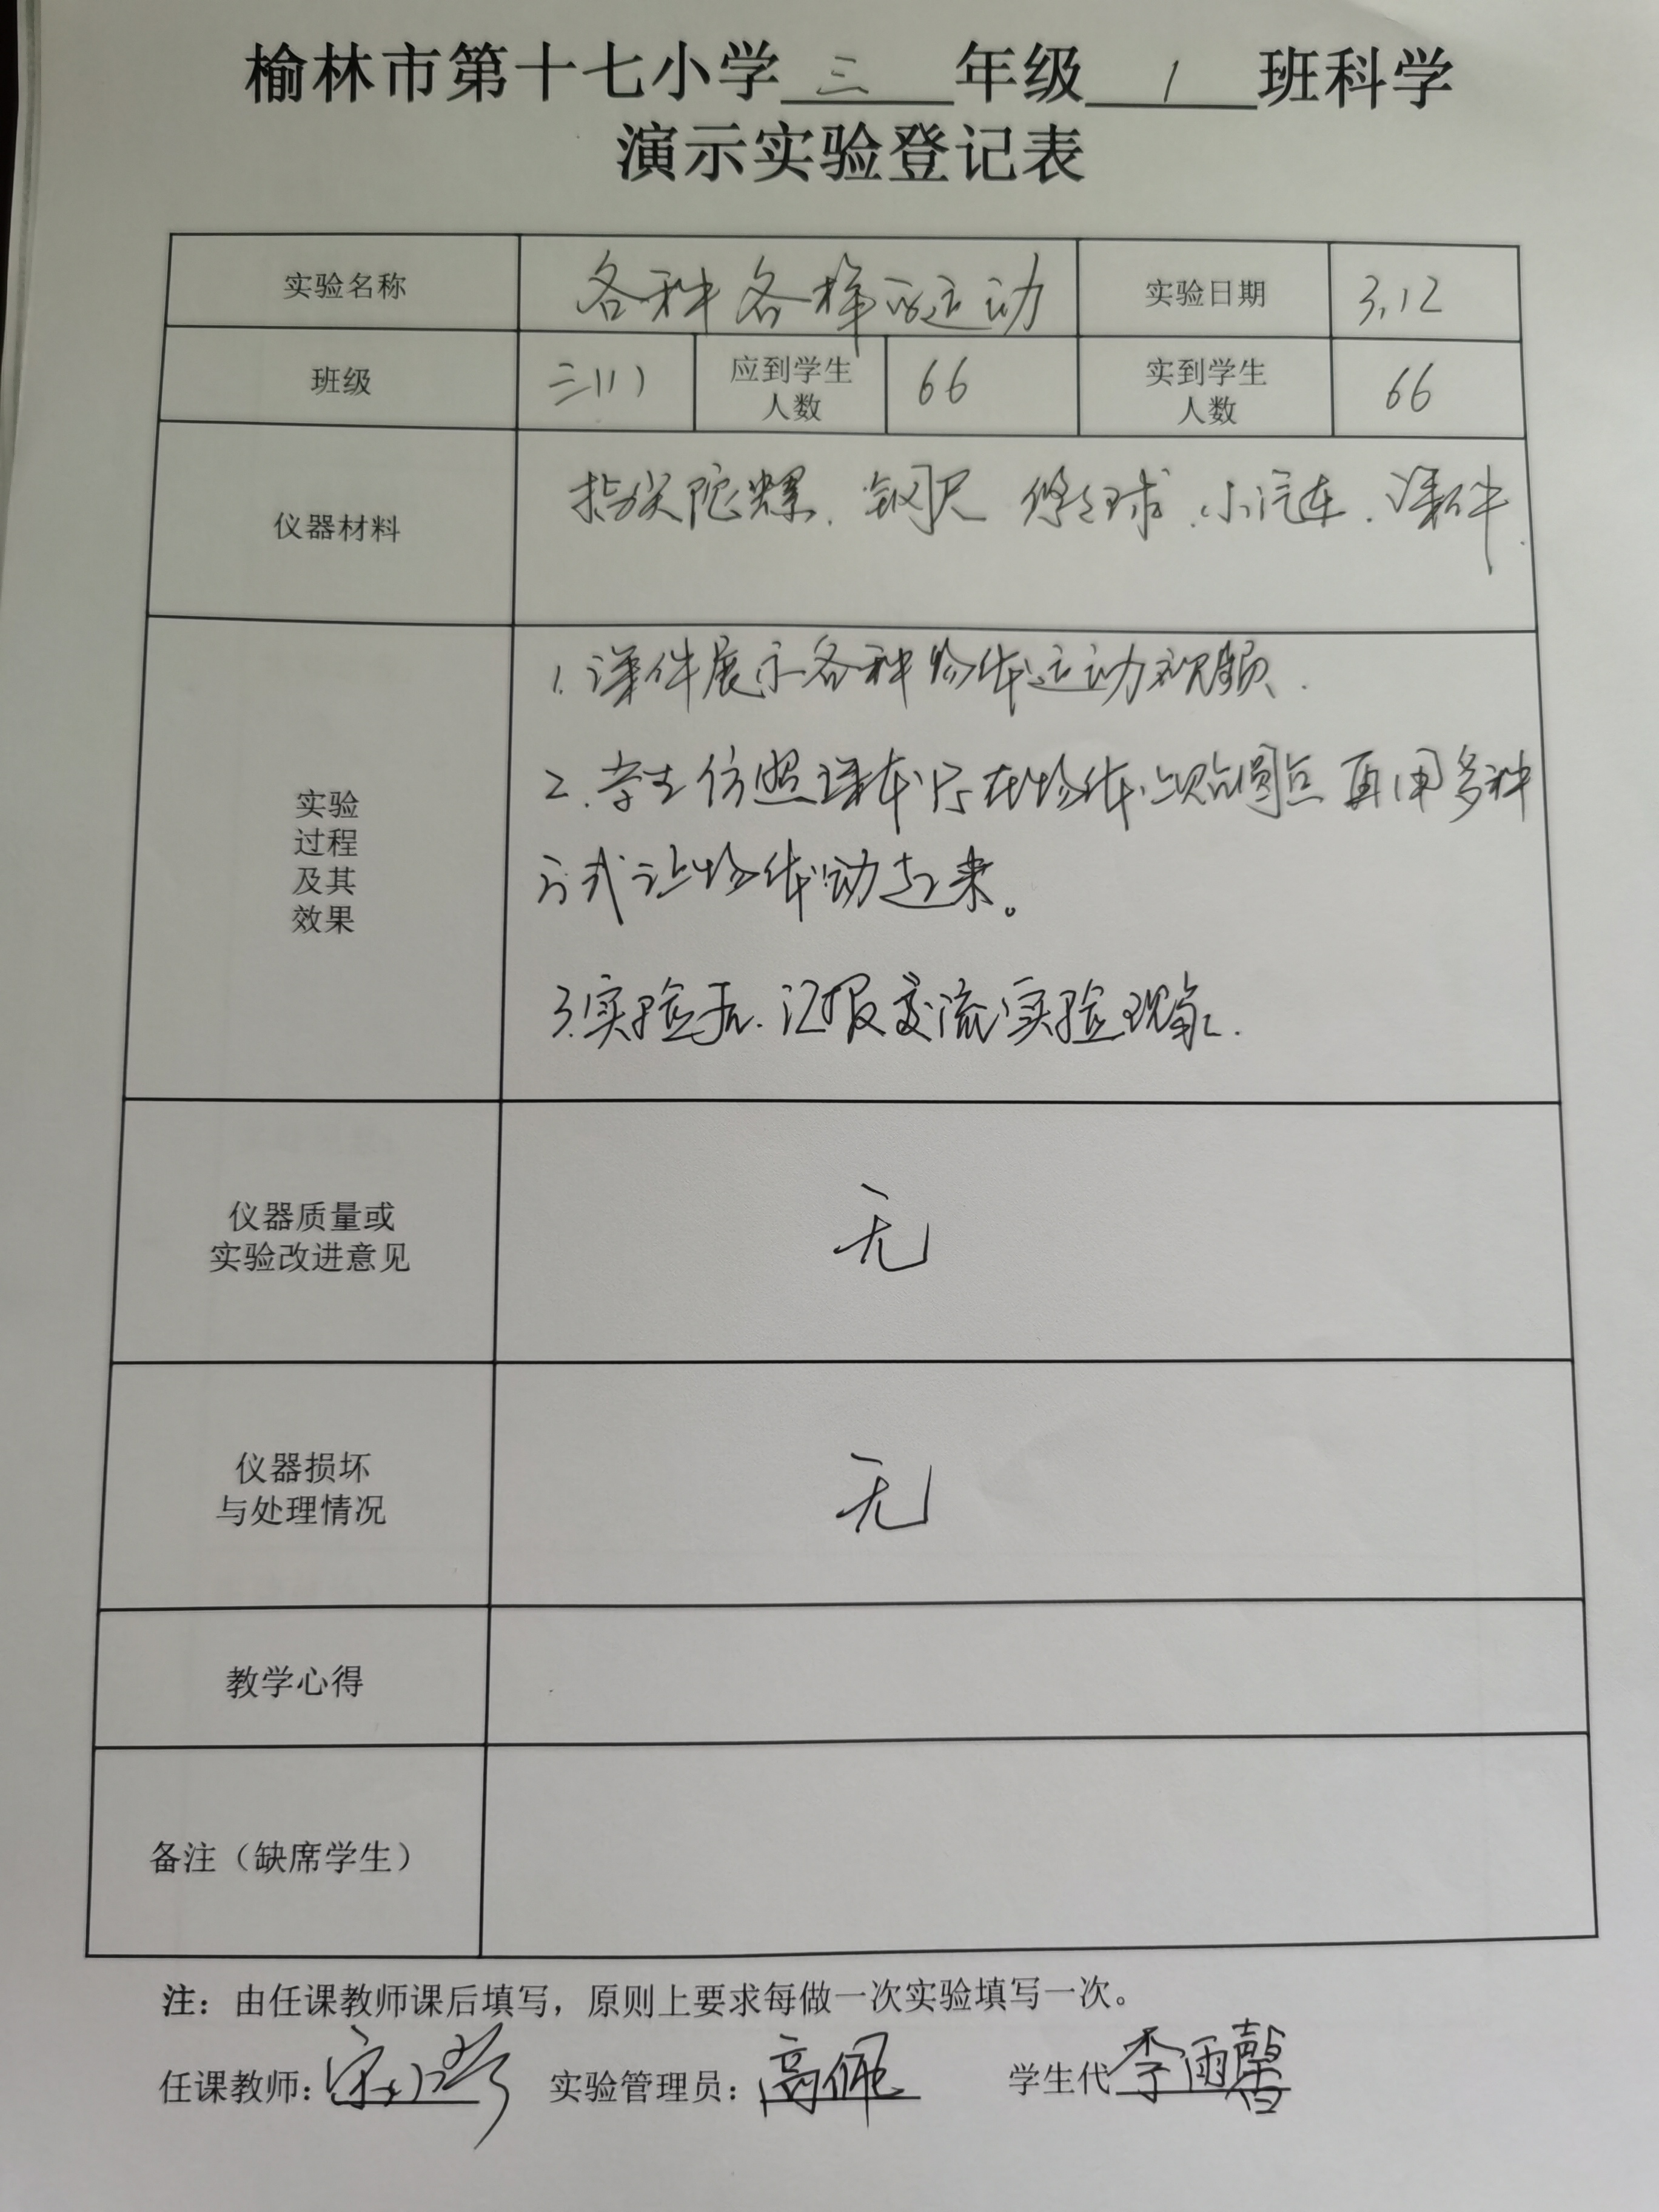 榆林市第十七小学三年级1班科学
演示实验登记表
实验名称 各种各样的运动 实验日期 3.12
班级 三(1) 应到学生人数 66 实到学生人数 66
仪器材料 指尖陀螺、钢尺 悠悠球、小汽车、课件.
实验
过程
及其
效果
1.课件展示各种物体运动视频.
2.学生仿照课本 在物体上贴圆点 再用多种
方式让物体动起来。
3.实验后.汇报交流实验现象.
仪器质量或
实验改进意见 无
仪器损坏
与处理情况 无
教学心得
备注（缺席学生）
注：由任课教师课后填写，原则上要求每做一次实验填写一次。
任课教师: 实验管理员: 高佩 学生代 李雨馨